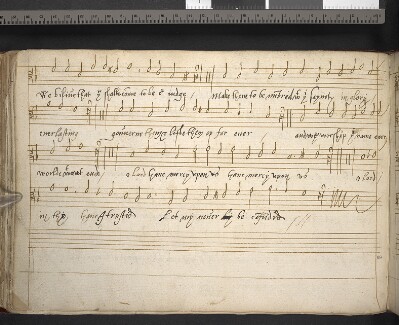 We beleve that y shalt come to be o judge Make them to be nubred wt y saynts in glory
everlasting governe them & lifte them up for ever and we worship y name ever
world wtout ende o Lord have mercy upon us have mercy upon us o Lord
in the have I trusted Let me never be cofoūded